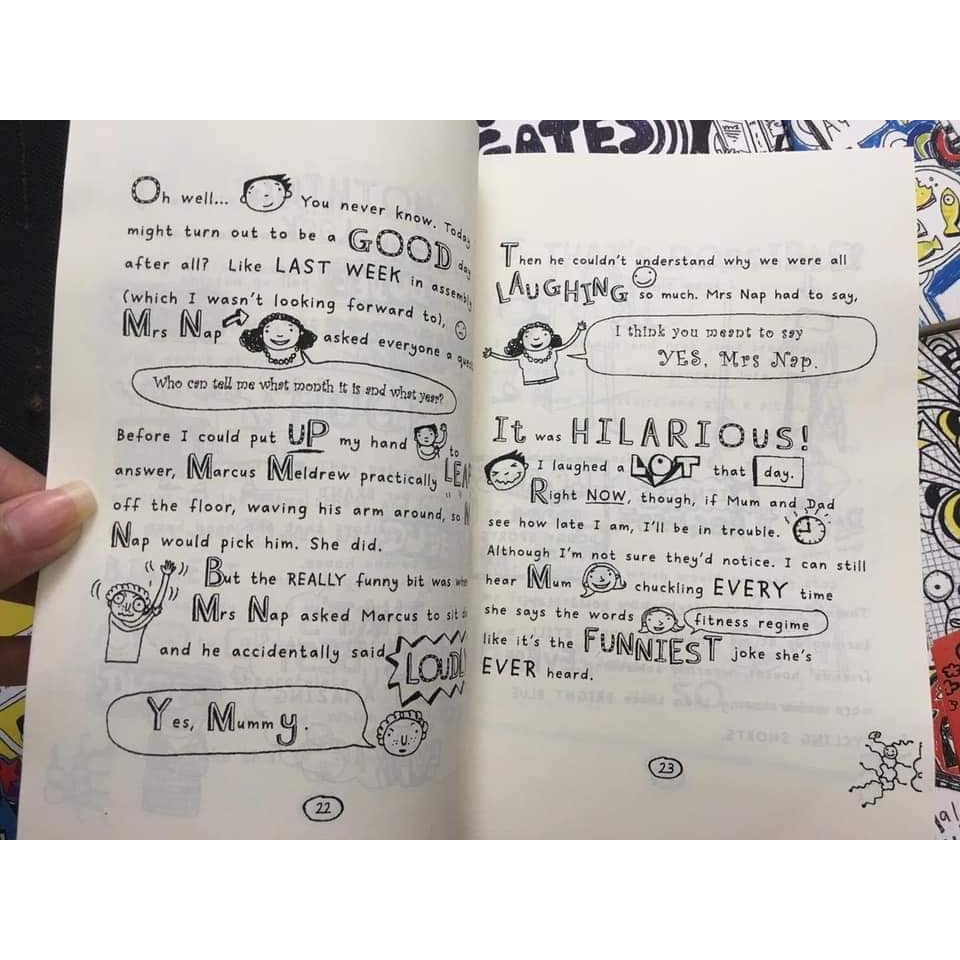 EATES
Oh well... You never know. Today
might turn out to be a GOOD day
after all? Like LAST WEEK in assembly
(which I wasn't looking forward to),
Mrs Nap asked everyone a
Who can tell me what month it is and what year?
Before I could put UP my hand to
answer, Marcus Meldrew practically
off the floor, waving his arm around, so
Nap would pick him. She did.
But the REALLY funny bit was
Mrs Nap asked Marcus to sit
and he accidentally said LOUDLY
Yes, Mummy.
22
Then he couldn't understand why we were all
LAUGHING so much. Mrs Nap had to say,
I think you meant to say
YES, Mrs Nap.
It was HILARIOUS!
I laughed a LOT that day.
Right NOW, though, if Mum and Dad
see how late I am, I'll be in trouble.
Although I'm not sure they'd notice. I can still
hear Mum chuckling EVERY time
she says the words fitness regime
like it's the FUNNIEST joke she's
EVER heard.
23